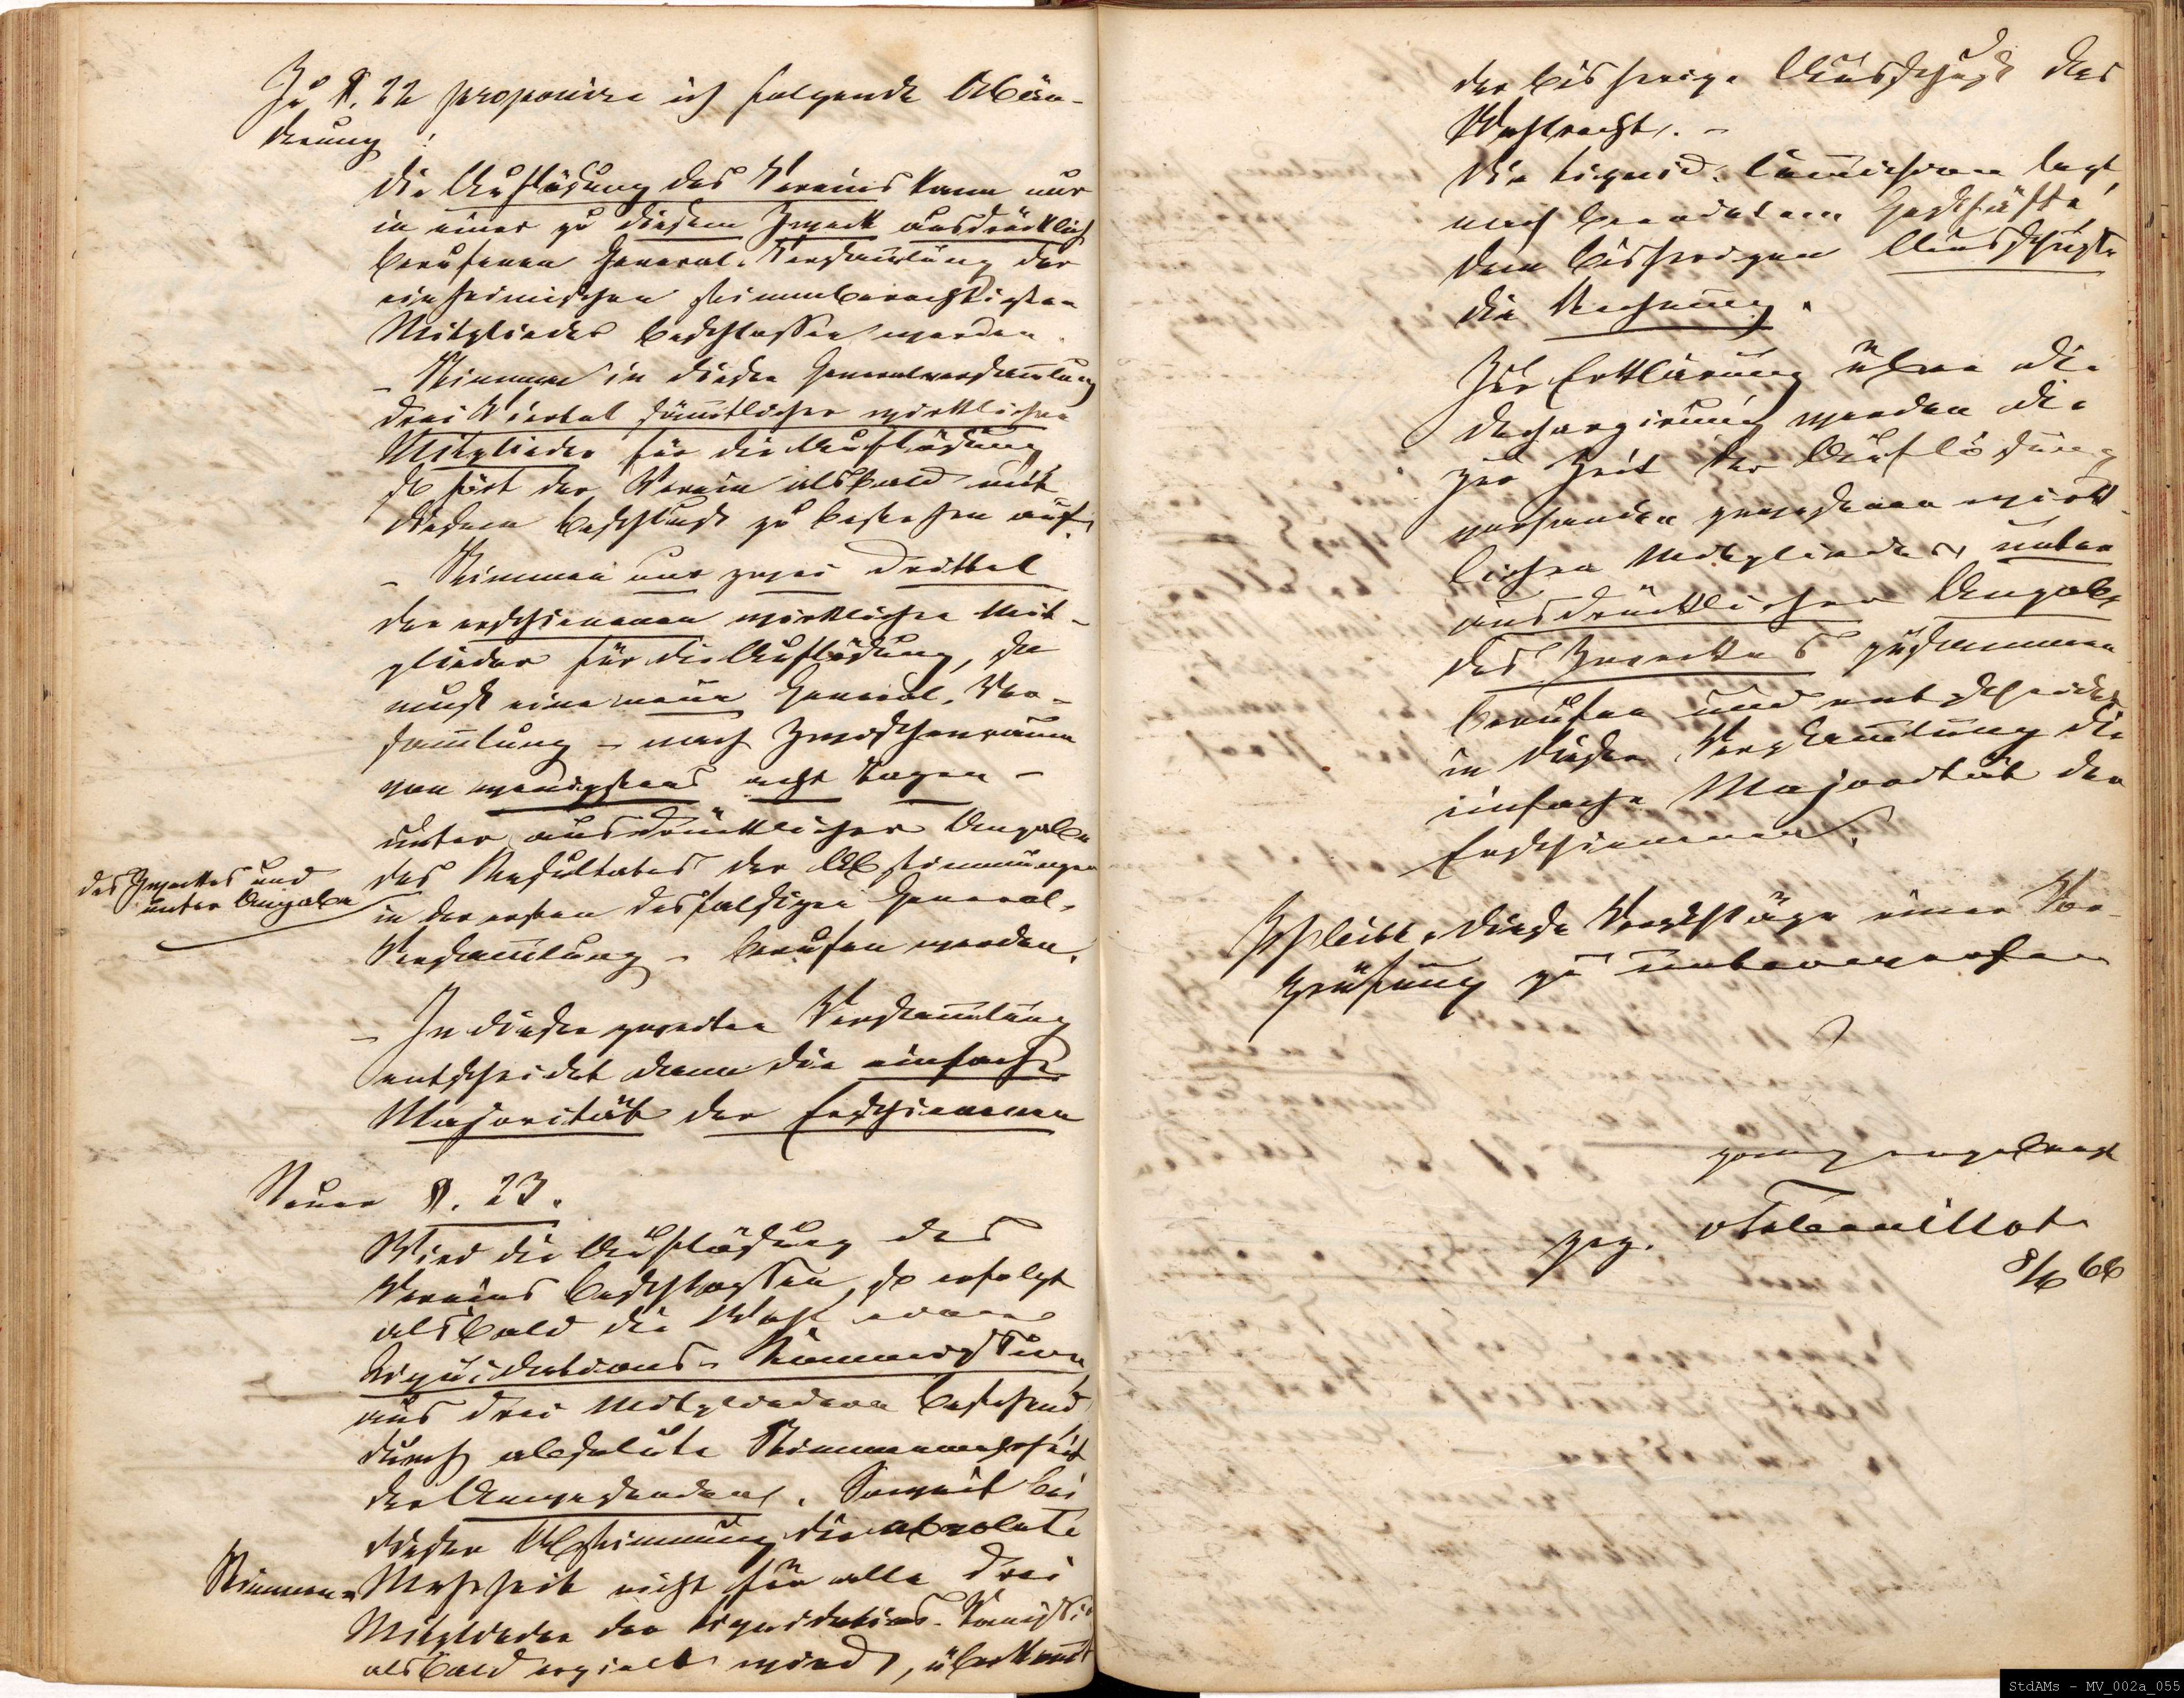 Zu §. 22 proponire ich folgende Abän-
derung :
die Auflösung des Vereins kann nur
in einer zu diesem Zweck ausdrücklich
berufenen General-Versam̄lung der
einheimischen stimmberechtigten
Mitglieder beschlossen werden.
– Stimmen in dieser Generalversam̄lung
drei Viertel sämtlicher wirklichen
Mitglieder für die Auflösung,
so hört der Verein alsbald mit
diesem Beschluße zu bestehen auf.
– Stimmen nur zwei Drittel
der erschienenen wirklichen Mit-
glieder für die Auflösung, so
muß eine neue General-Ver-
sam̄lung – nach Zwischenraum
von wenigstens acht Tagen –
unter ausdrücklicher Angabe
des Zweckes und
unter Angabe
des Resultates der Abstimmungen
in der ersten desfalsigen General-
Versam̄lung – berufen werden.
– In dieser zweiten Versam̄lung
entscheidet dann die einfache
Majorität der Erschienenen
Neuer §. 23.
Wird die Auflösung des
Vereins beschlossen, so erfolgt
alsbald die Wahl einer
Liquidations-Kommission
aus drei Mitgliedern bestehend,
durch absolute Stimmenmehrheit
der Anwesenden. Soweit bei
dieser Abstimmung die absolute
Stimmen-Mehrheit nicht für alle drei
Mitglieder der Liquidations-Kom̄issi
alsbald erzielt wird, überkommt
der bisherige Ausschuß das
Wahlrecht. –
Die Liquid. Com̄ission legt,
nach beendetem Geschäfte,
dem bisherigen Ausschuße
die Rechnung.
Zur Erklärung über die
Dechargirung werden die
zur Zeit der Auflösung
vorhanden gewesenen wirk-
lichen Mitglieder, unter
ausdrücklicher Angabe
des Zweckes zusammen
berufen und entscheidet
in dieser Versam̄lung die
einfache Majorität der
Erschienenen.
diese Vorschläge einer Vor-
prüfung zu unterwerfen
ganz ergebenst
gez. vTabouillot
8/6 66
StdAMs - MV_002a_055